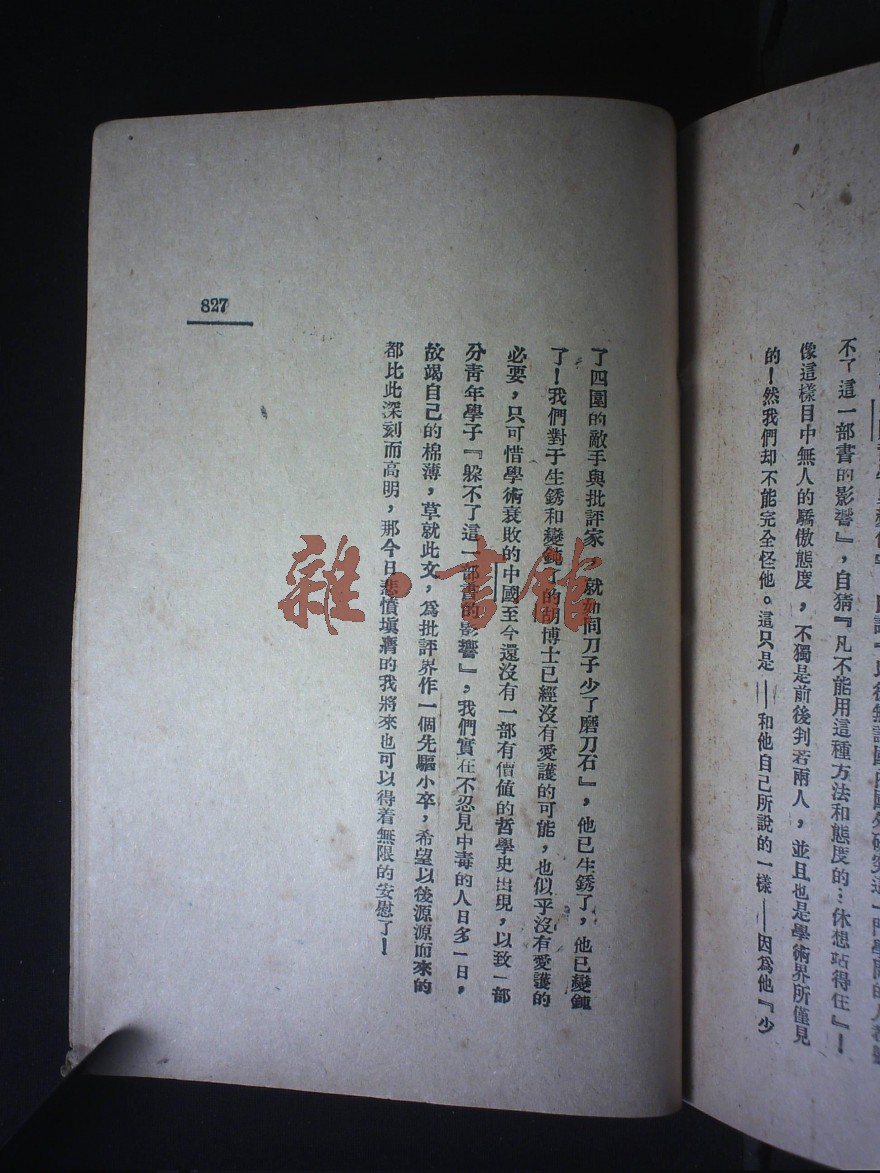 不了這一部書的影響』，自猜『凡不能用這種方法和態度的…休想站得住』！
像這樣目中無人的驕傲態度，不獨是前後判若兩人，並且也是學術界所僅見
的！然我們却不能完全怪他。這只是——和他自己所說的一樣——因爲他『少
了四圍的敵手與批評家，就如同刀子少了磨刀石』，他已生銹了，他已變鈍
了！我們對于生銹和變鈍了的胡博士已經沒有愛護的可能，也似乎沒有愛護的
必要，只可惜學術衰敗的中國至今還沒有一部有價值的哲學史出現，以致一部
分青年學子『躲不了這一部書的影響』，我們實在不忍見中毒的人日多一日，
故竭自己的棉薄，草就此文，爲批評界作一個先驅小卒，希望以後源源而來的
都比此深刻而高明，那今日悲憤填膺的我將來也可以得着無限的安慰了！
827
雜·書館